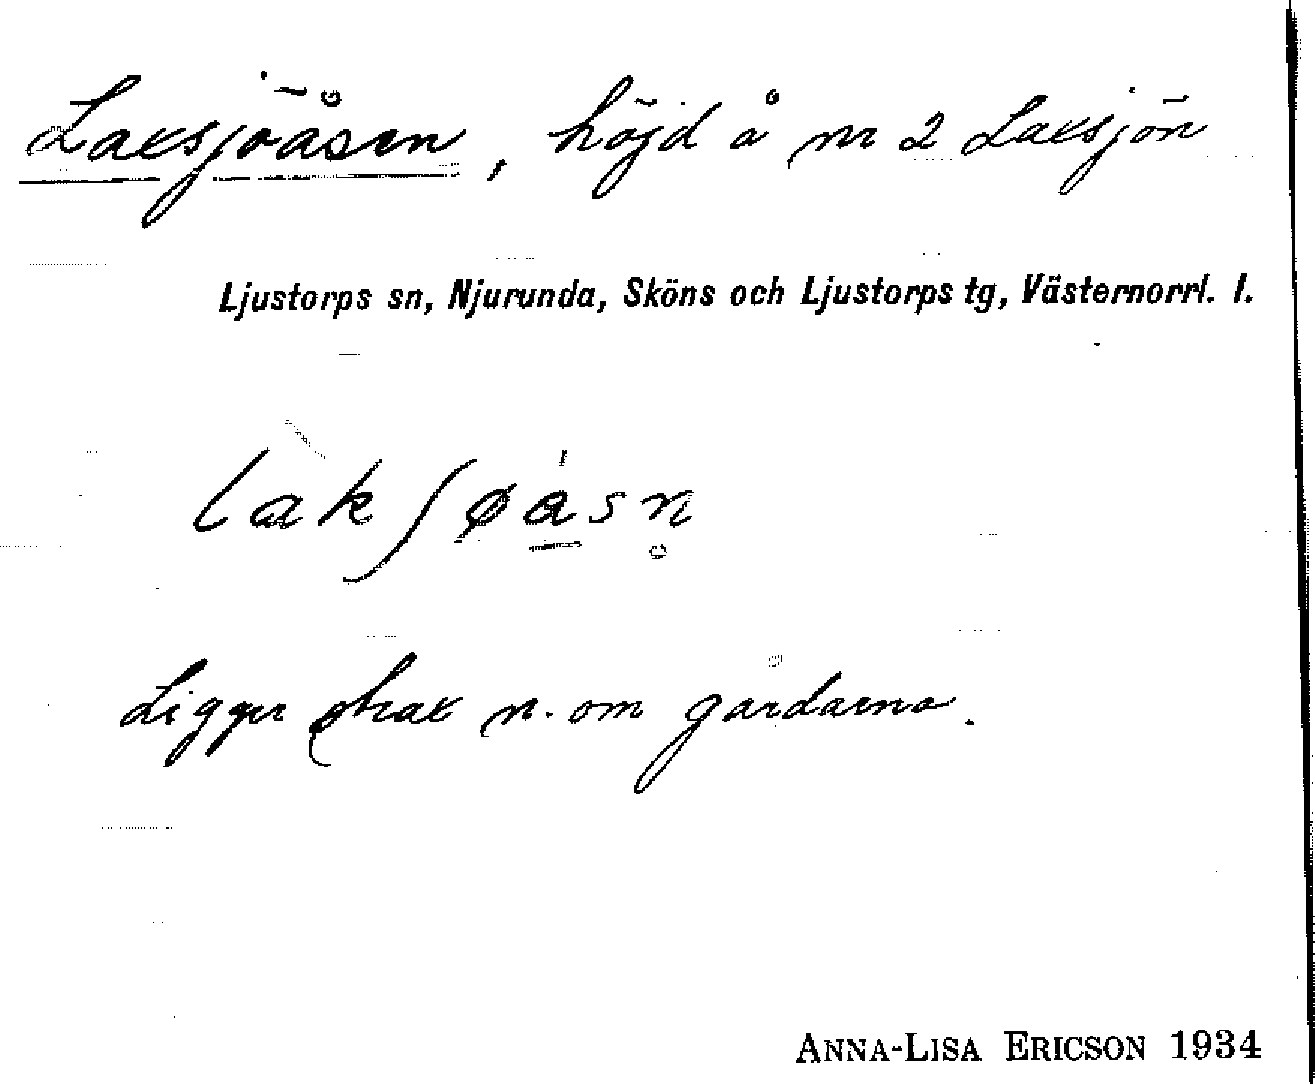 Laxsjöåsen, höjd å nr 2 Laxsjön
Ljustorps sn, Njurunda, Sköns och Ljustorps tg, Västernorrl. l.
lakʃøásn̥
Ligger strax n. om gårdarna.
ANNA-LISA ERICSON 1934